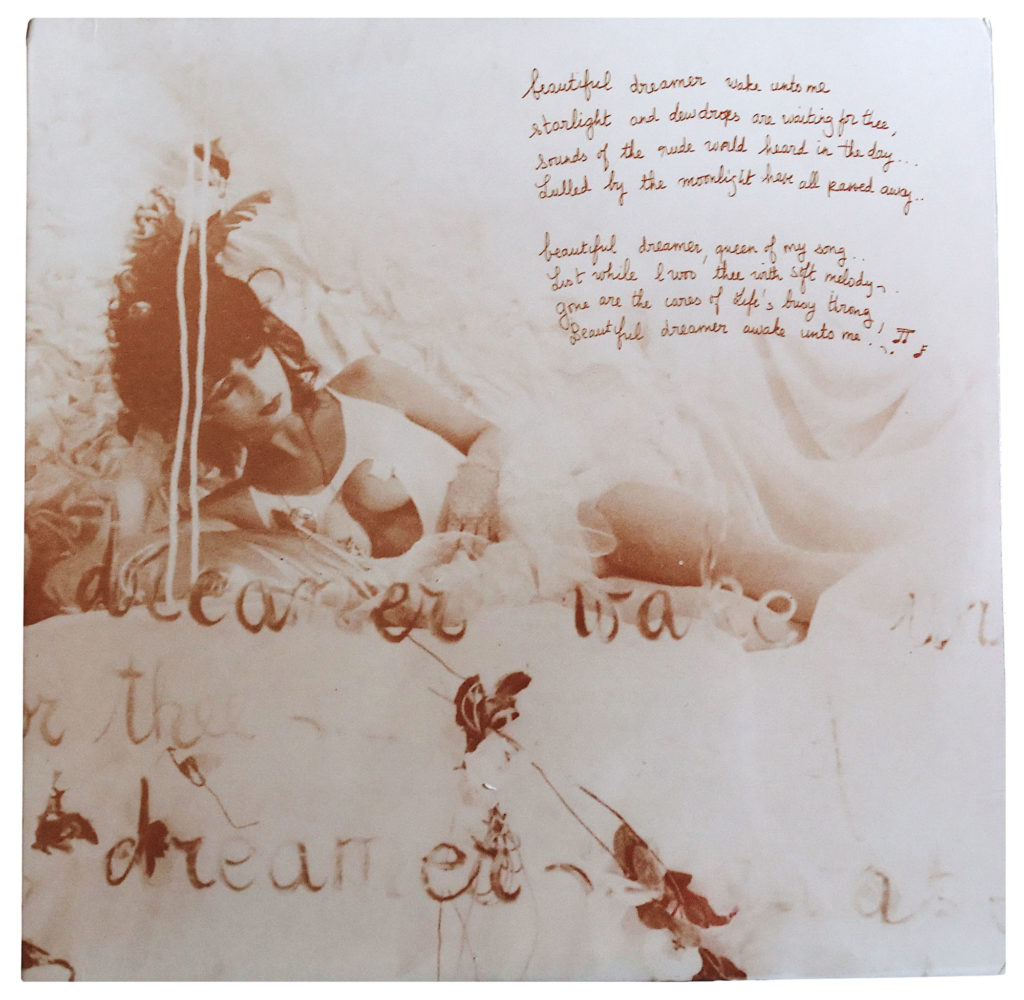 beautiful dreamer wake unto me
starlight and dewdrops are waiting for thee,
sounds of the rude world heard in the day...
Lulled by the moonlight have all passed away..
beautiful dreamer, queen of my song..
List while I woo thee with soft melody~.
gone are the cares of Life's busy throng,
Beautiful dreamer awake unto me..
dreamer wake un
or thee ~
dreamer ~